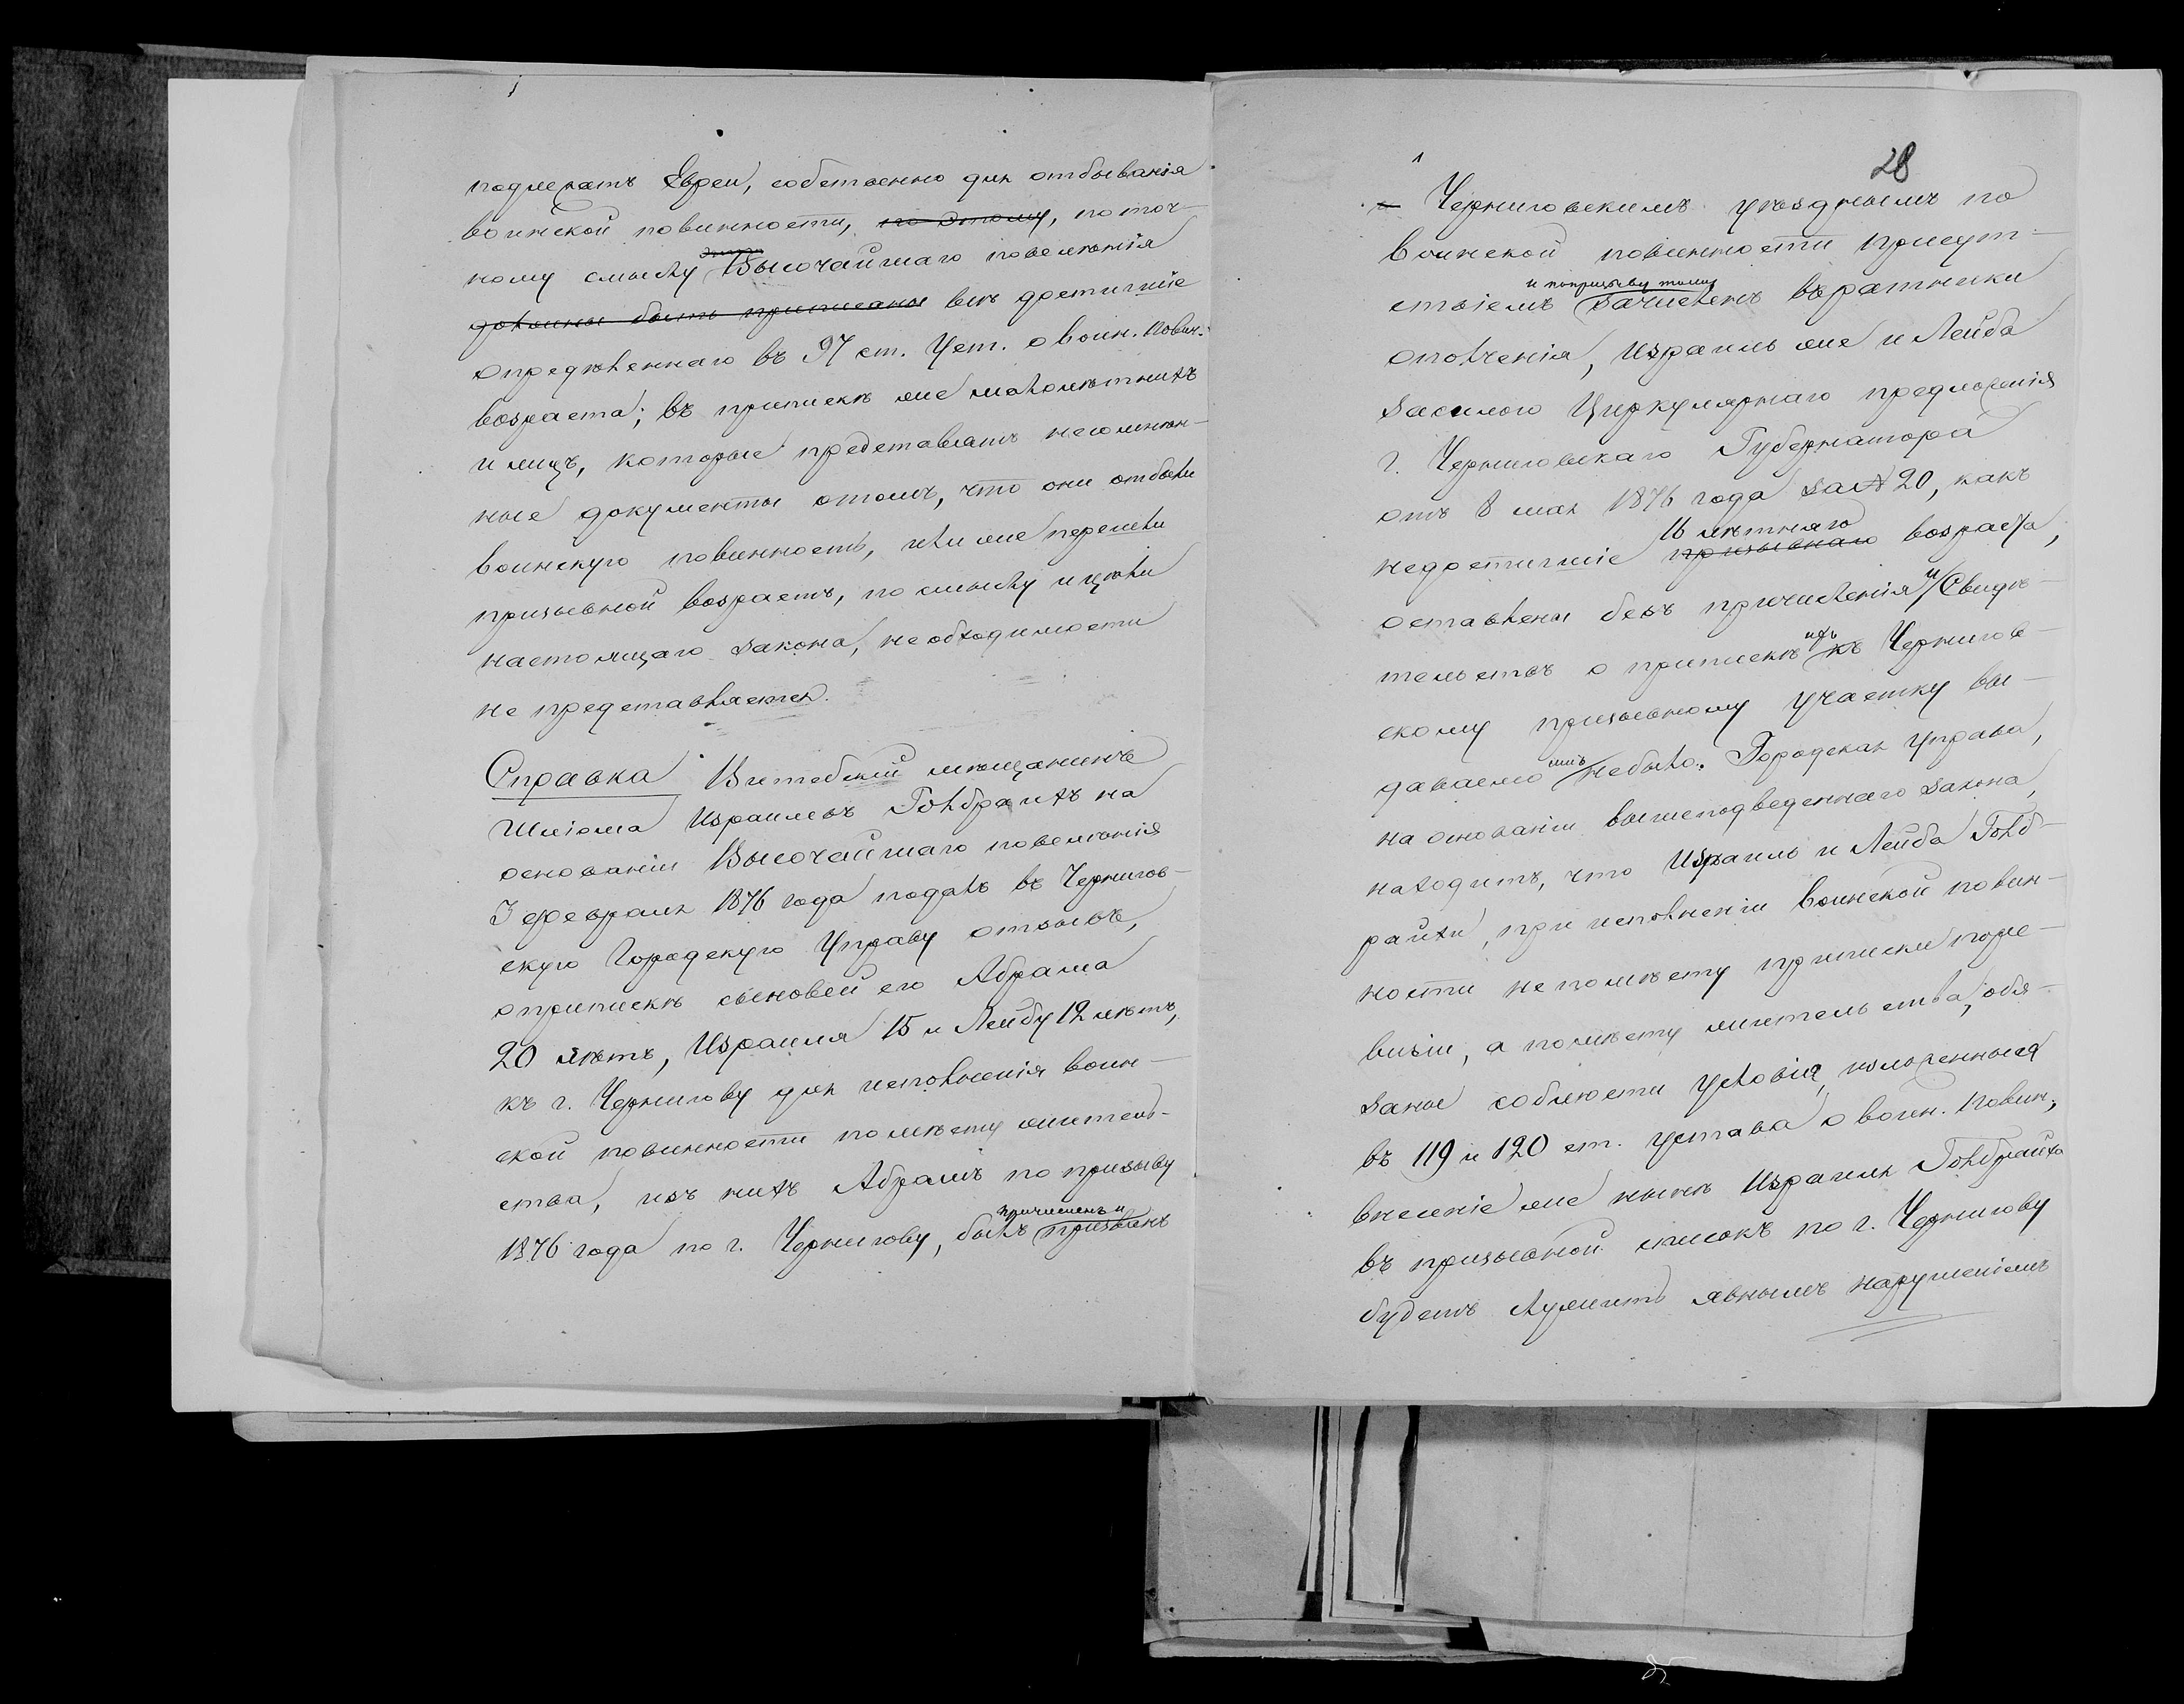 подлежатъ Евреи, собственно для отбыванія
воинской повинности, по этому, по точ-
ному смыслу Высочайшаго повелѣнія
должны быть приписаны всѣ достигшіе
опредѣленнаго въ 97 ст. Уст. о воин. повин.
возраста; въ припискѣ же малолѣтнихъ
и лицъ, которые представлятъ несомнѣн-
ные документы о томъ, что они отбыли
воинскую повинность, или же перешли
призывной возрастъ, по смыслу и цѣли
настоящаго закона, необходимости
не представляется.
Справка Витебскій мѣщанинъ
Шліома Израилевъ Гольбрайхъ на
основаніи Высочайшаго повелѣнія
3 февраля 1876 года подалъ въ Чернигов-
скую Городскую Управу отзывъ,
о припискѣ сыновей его Абрама
20 лѣтъ, Израиля 15 и Лейбу 12 лѣтъ,
къ г. Чернигову для исполненія воин-
ской повинности по мѣсту житель-
ства, изъ нихъ Абрамъ по призыву
причисленъ и
1876 года по г. Чернигову, былъ призванъ
28
и Черниговскимъ уѣзднымъ по
воинской повинности присут-
и по призыву тому
ствіемъ зачисленъ въ ратники
ополченія, Израиль же и Лейба
за силою Циркулярнаго предложенія
г. Черниговскаго Губернатора
отъ 8 мая 1876 года за № 20, какъ
16 лѣтняго
недостигшіе призывнаго возраста,
оставлены безъ причисленія и Свидѣ-
ихъ
тельствъ о припискѣ къ Чернигов-
скому призывному участку вы-
имъ
даваемо небыло. Городская Управа,
на основаніи вышеподведеннаго закона,
находитъ, что Израиль и Лейба Гольб-
райхи, при исполненіи воинской повин-
ности не по мѣсту приписки по ре-
визіи, а по мѣсту жительства, обя-
заны соблюсти условія, изложенныя
въ 119 и 120 ст. устава о воин. повин.,
внесеніе же нынѣ Израиля Гольбрайха
въ призывной списокъ по г. Чернигову
будетъ служить явнымъ нарушеніемъ